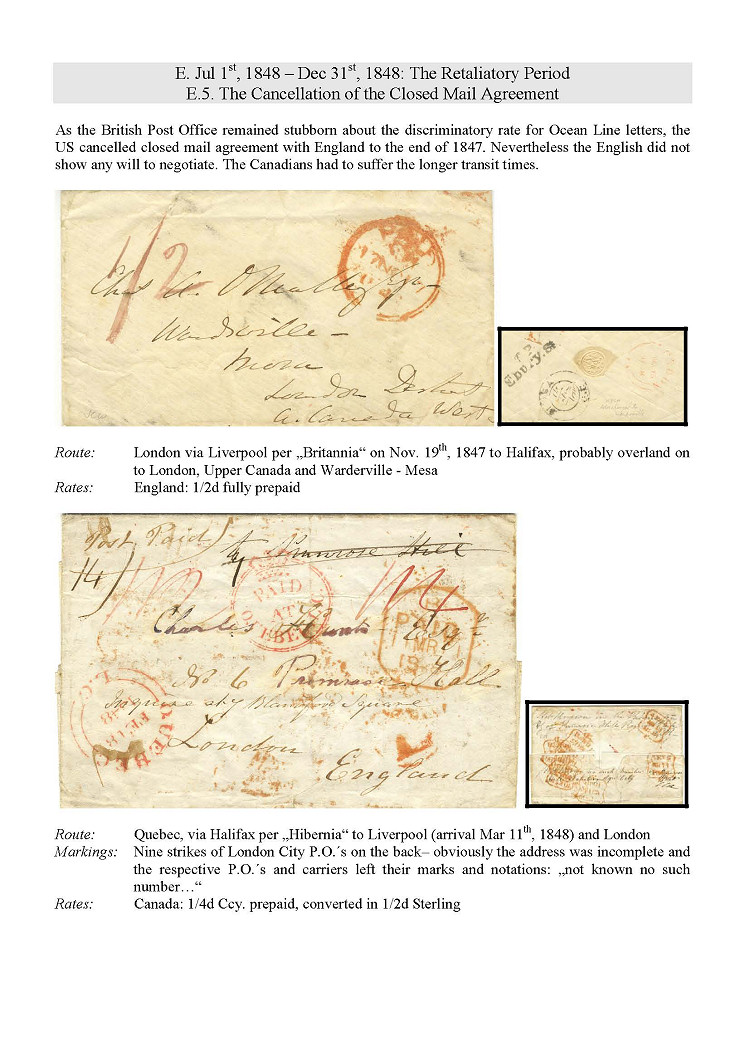 E. Jul 1st, 1848 – Dec 31st, 1848: The Retaliatory Period
E.5. The Cancellation of the Closed Mail Agreement
As the British Post Office remained stubborn about the discriminatory rate for Ocean Line letters, the
US cancelled closed mail agreement with England to the end of 1847. Nevertheless the English did not
show any will to negotiate. The Canadians had to suffer the longer transit times.
1/2
Wardsville –
London
Canada West
Ebury St
Route: London via Liverpool per „Britannia“ on Nov. 19th, 1847 to Halifax, probably overland on
to London, Upper Canada and Warderville - Mesa
Rates: England: 1/2d fully prepaid
Post Paid
Primrose Hill
PAID
AT
QUEBEC
PAID
Charles Hunt Esqr
No 6 Primrose Hall
Square
QUEBEC
London
England
Route: Quebec, via Halifax per „Hibernia“ to Liverpool (arrival Mar 11th, 1848) and London
Markings: Nine strikes of London City P.O.´s on the back– obviously the address was incomplete and
the respective P.O.´s and carriers left their marks and notations: „not known no such
number…“
Rates: Canada: 1/4d Ccy. prepaid, converted in 1/2d Sterling